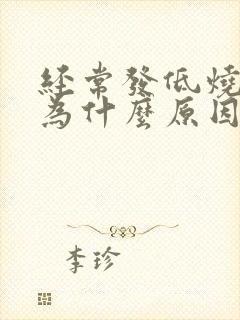 經常發低燒
為什麼原因
李珍